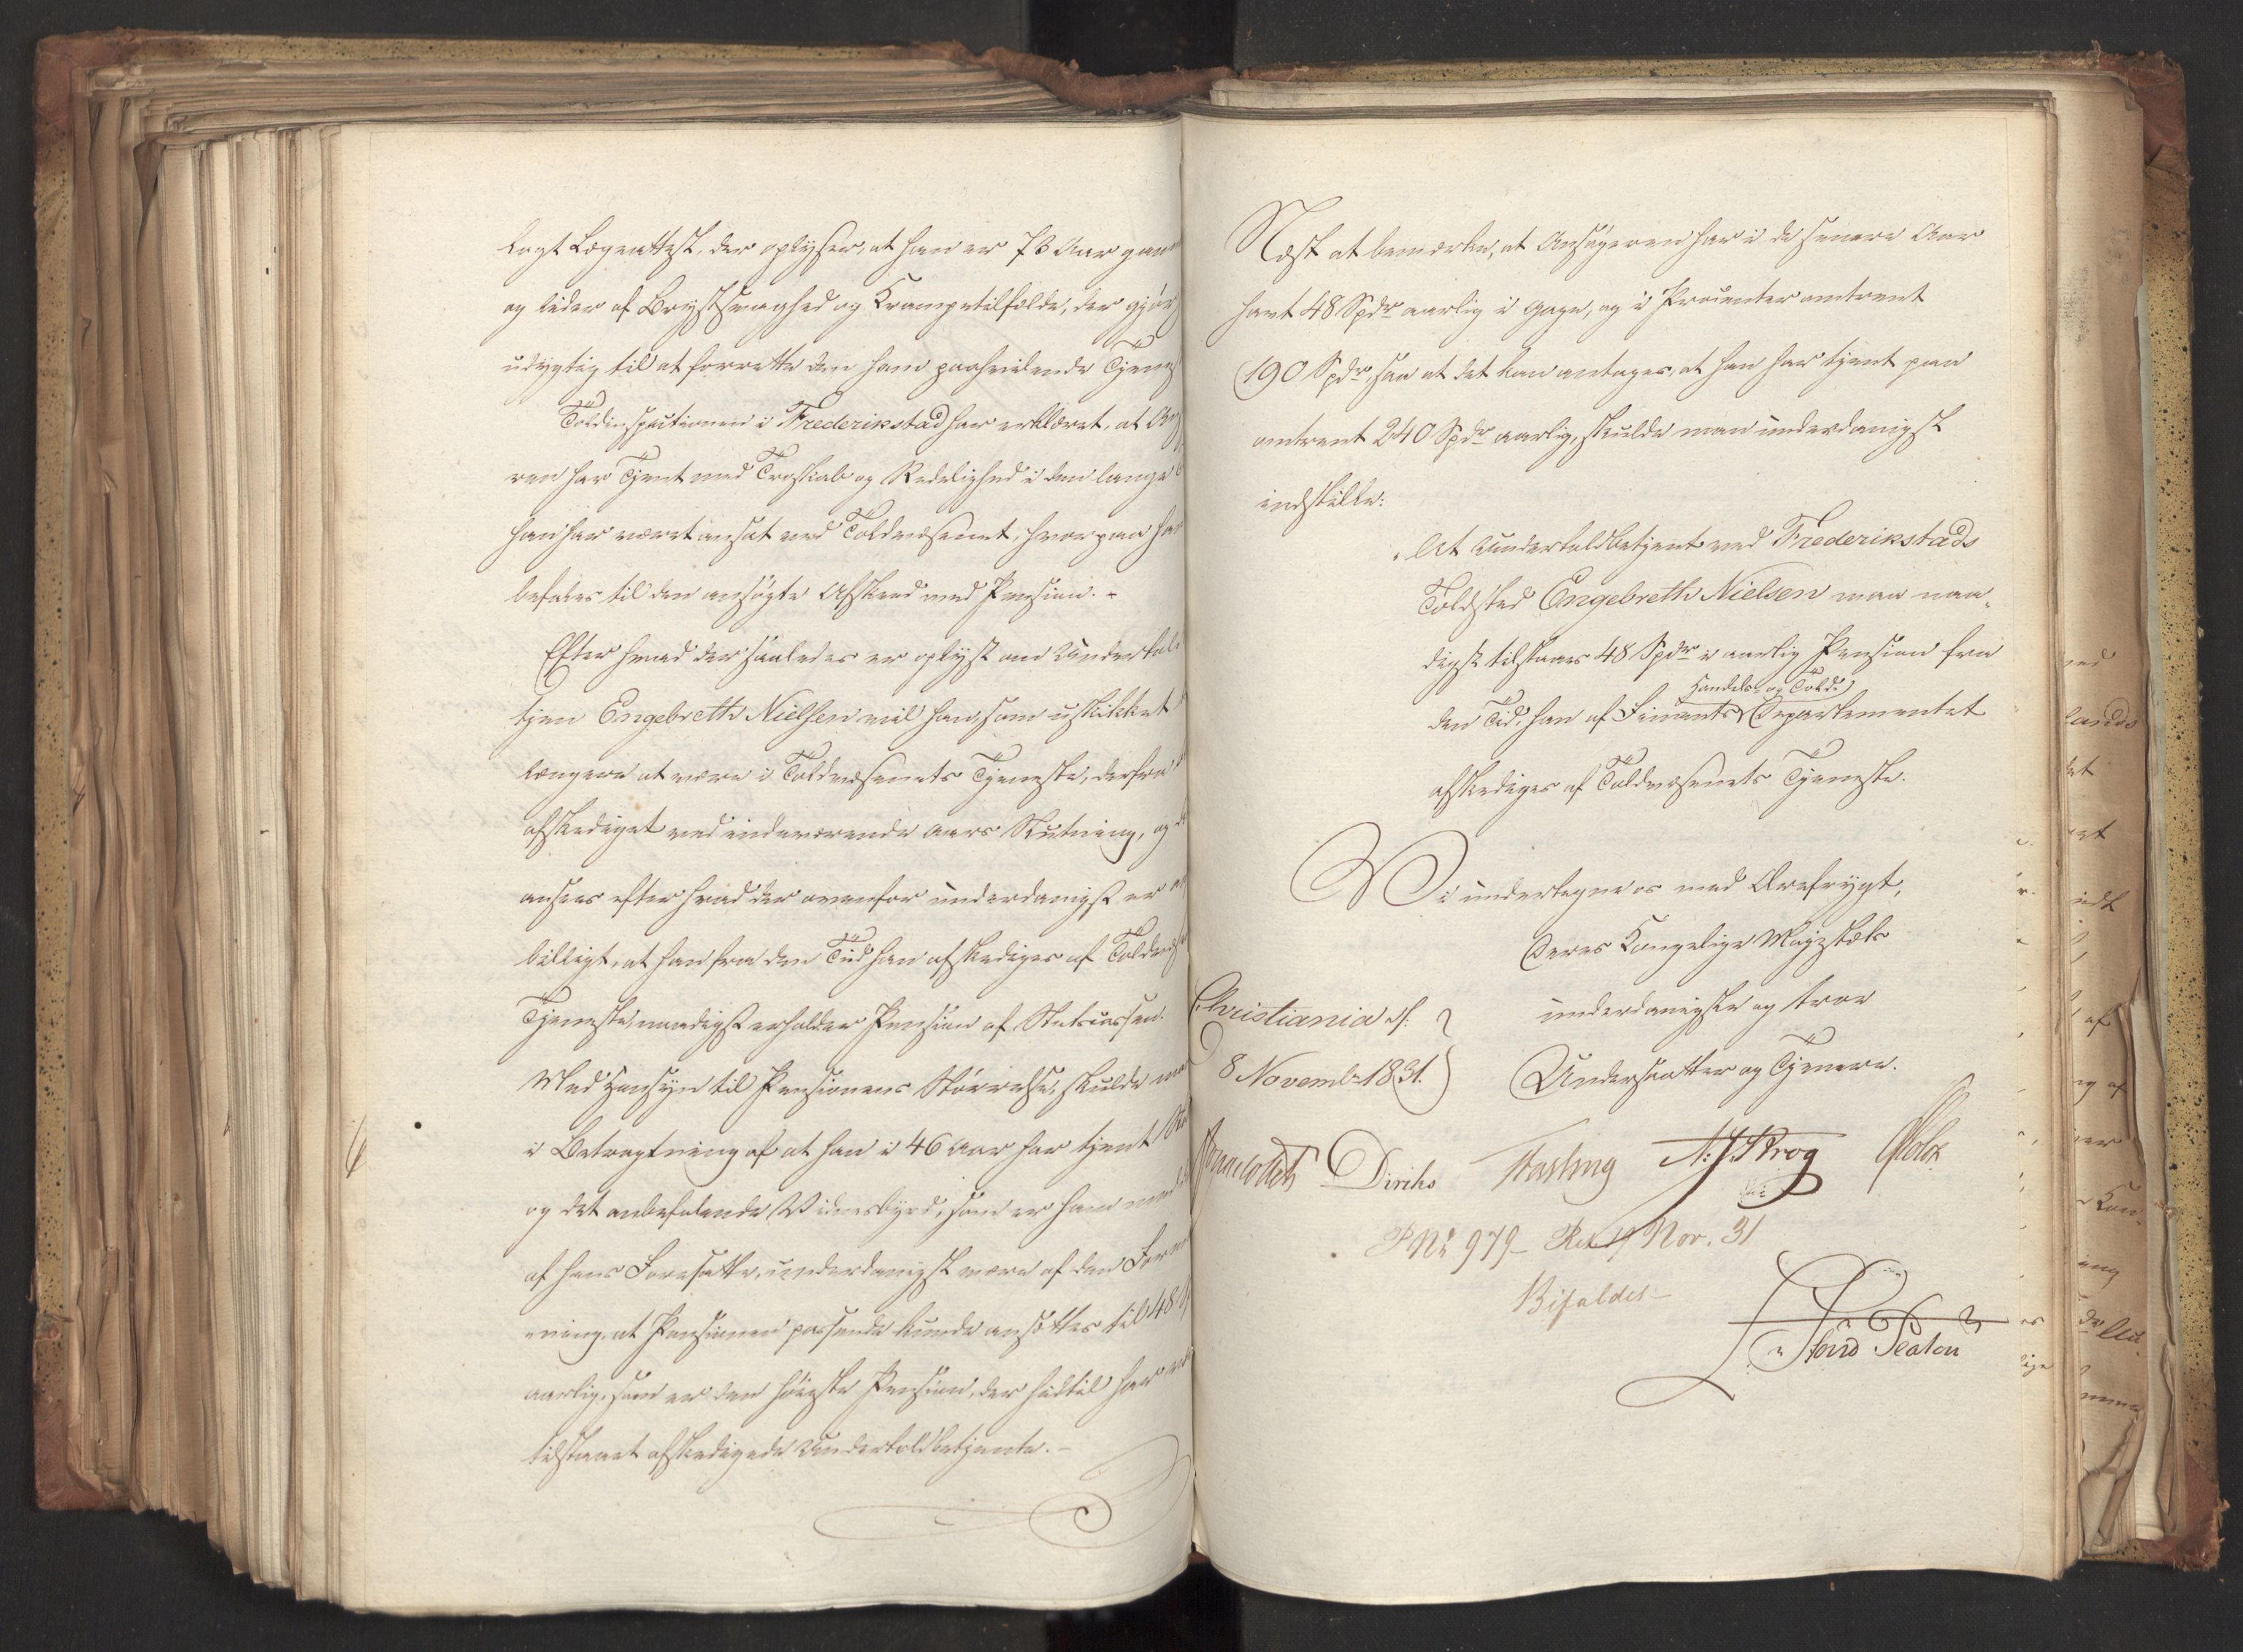 lagt Lægeattest, der oplyser, at han er 73 Aar gam
og lider af Brystsvaghed og Krampetilfælde, der gjør
udygtig til at forrette den ham paahvilende Tjenes
Toldinspectionen i Frederikstad har erklæret, at
ren har tjent med Troskab og Redelighed i den lange
han har været ansat ved Toldvæsenet, hvorpaa ha
befales til den ansøgte Afskeed med Pension. -
Efter hvad der saaledes er oplyst om Undertold
tjen Engebreth Nielsen vil han, som uskikket
længere at være i Toldvæsenets Tjeneste, derfra
afskediget ved indeværende Aars Slutning, og
ansees efter hvad der ovenfor underdanigst er
billigt, at han fra den Tid han afskediges af Toldvæs
Tjeneste, naadigst erholder Pension af Statscassen.
Med Hensyn til Pensionens Størrelse, skulde ma
i Betragtning af at han i 46 Aar har tjent
og det anbefalende Vidnesbyrd, som er ham
af hans Foresatte, underdanigst være af den For
mening, at Pensionen passende kunde ansættes til 48
aarlig, som er den høieste Pension, der hidtil har
tilstaaet afskedigede Undertoldbetjente. -
Næst at bemærke, at Ansøgeren har i de senere Aar
havt 48 Spdr aarlig i Gage, og i Procenter omtrent
190 Spdr, saa at det kan antages, at han har tjent paa
omtrent 240 Spdr aarlig, skulde man underdanigst
indstille:
At Undertoldbetjent ved Frederikstads
Toldsted Engebreth Nielsen maa naa-
digst tilstaaes 48 Spdr i aarlig Pension fra
Handels- og Told-
den Tid, han af Finants Departementet
afskediges af Toldvæsenets Tjeneste.
Vi undertegne os med Ærefrygt,
Deres Kongelige Majestæts
underdanigste og troe
Undersaatter og Tjenere.
Christiania d.
8 Novembr 1831.
Jonas Collett Diriks Fasting N. J. Krog Holst
P No 979 - Res 19 Nov. 31
Bifaldes -